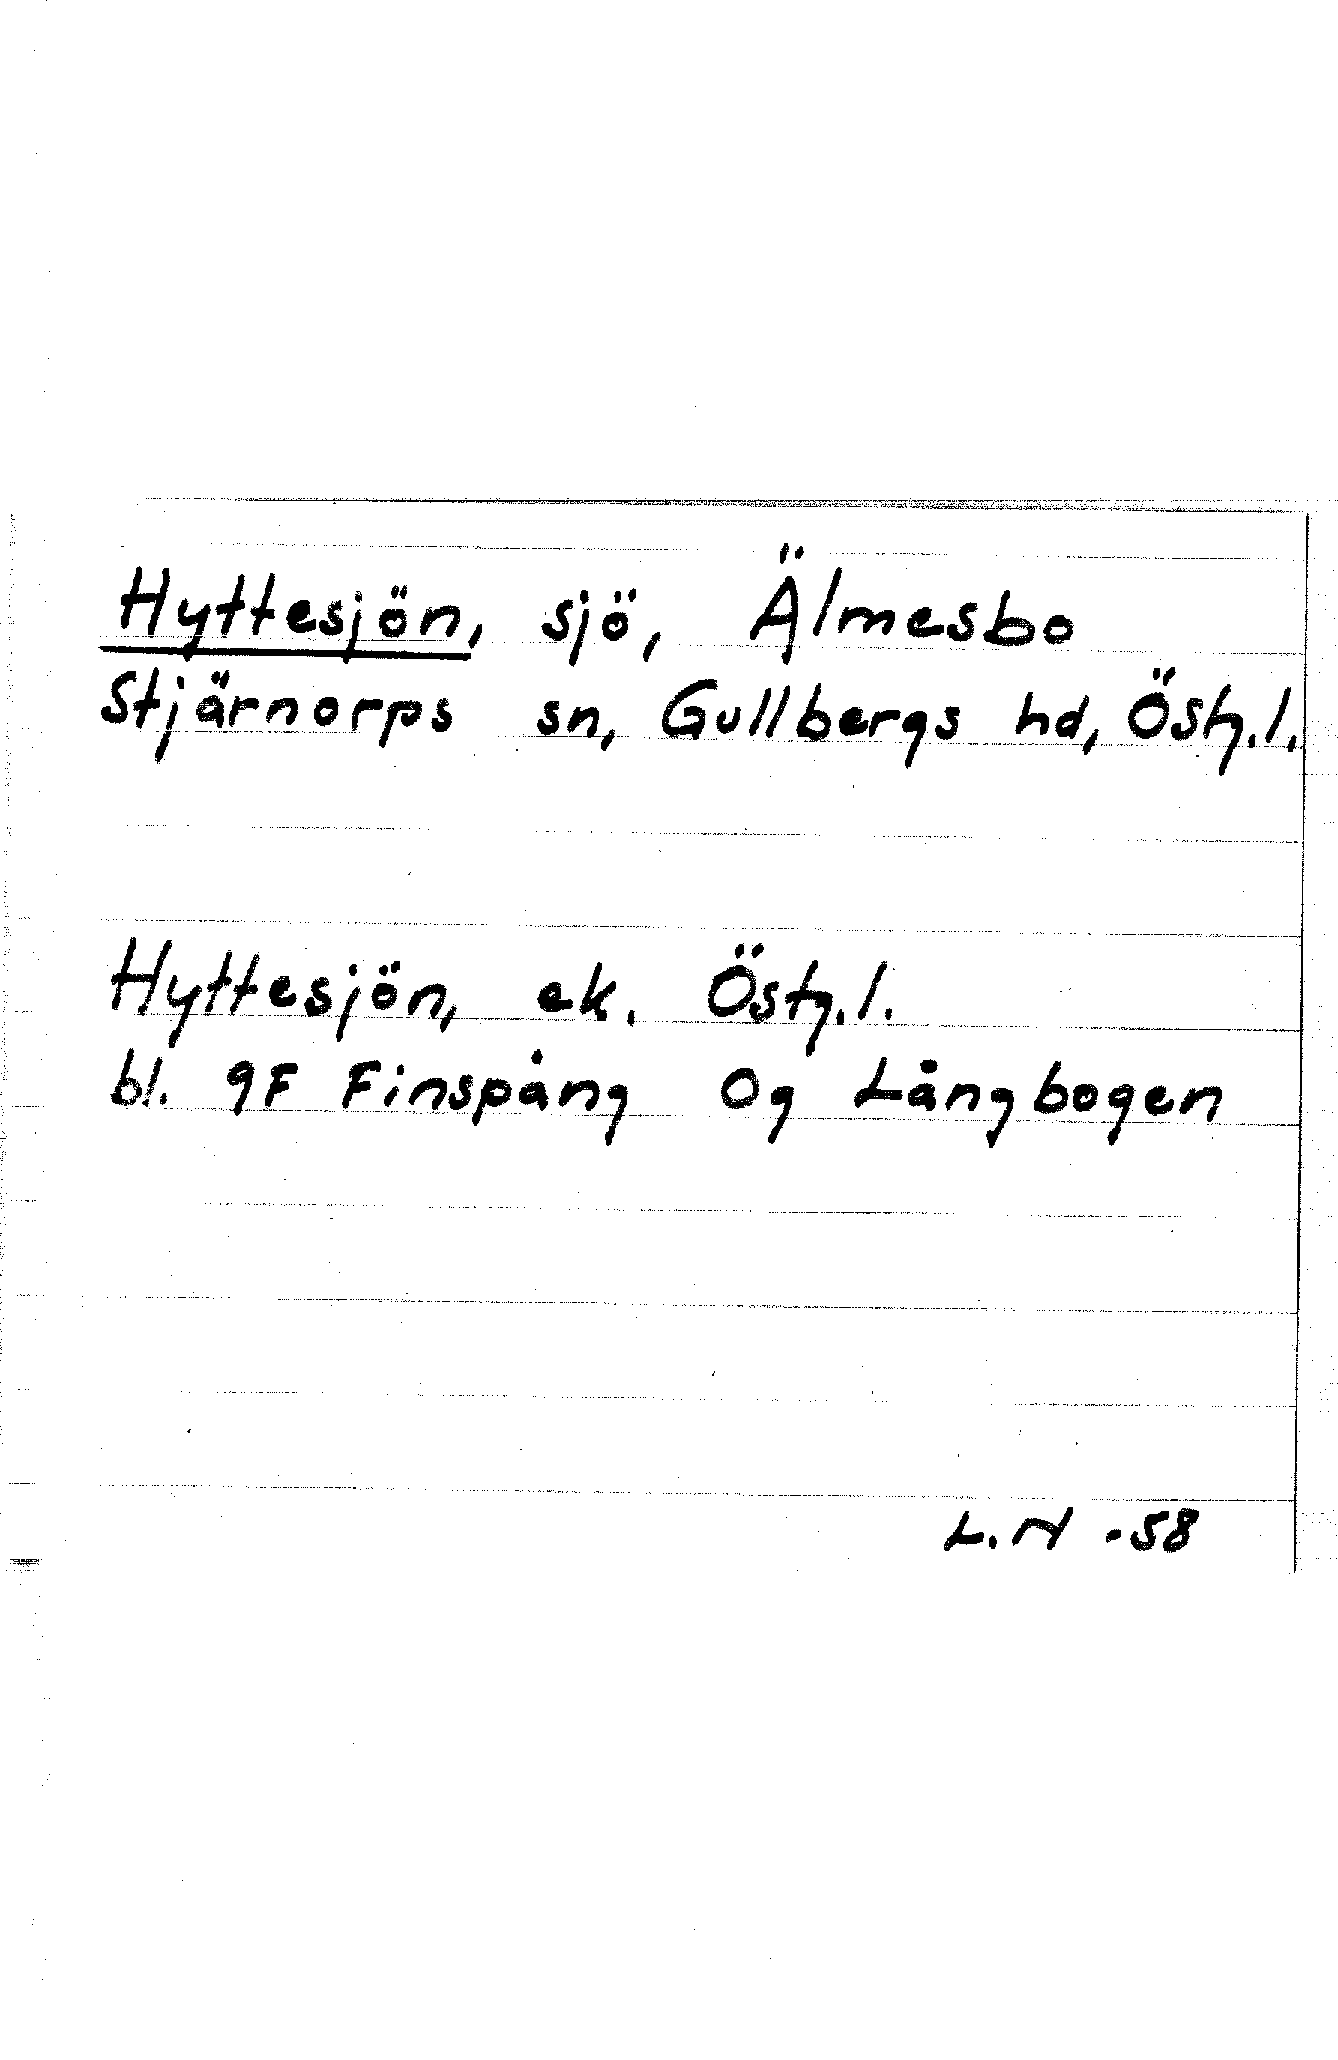 Hyttesjön, sjö, Älmesbo
Stjärnorps sn, Gullbergs hd, Östg.l.
Hyttesjön, ek. Östg.l.
bl. 9F Finspång 0g Långbogen
L.N -58